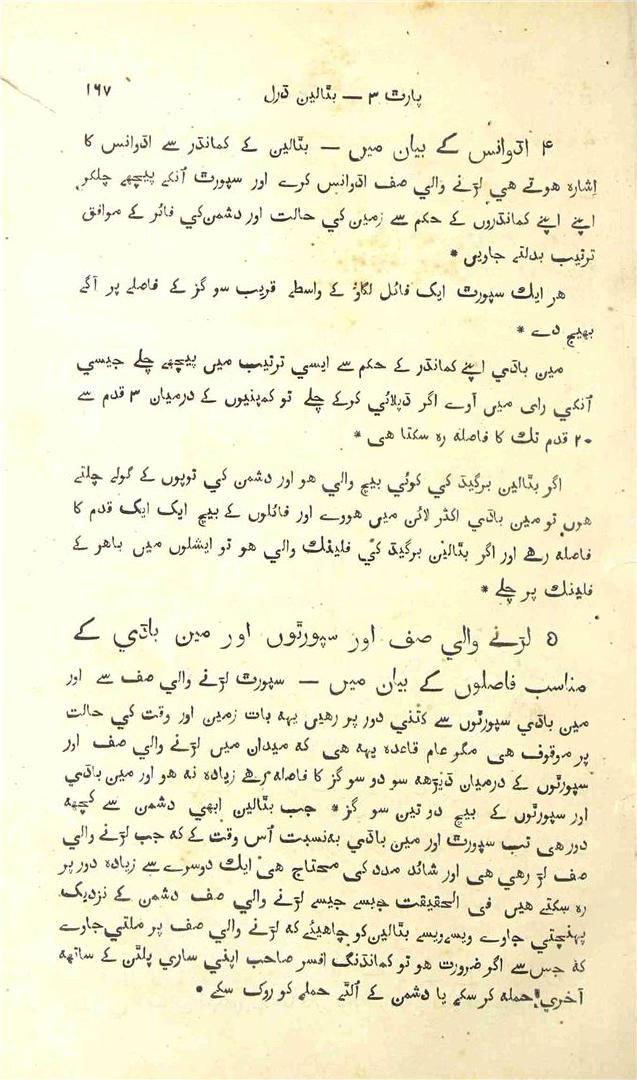 پارٹ ۳ — بٹالین ڈرل ۱۶۷
۴ اڈوانس کے بیان میں — بٹالین کے کمانڈر سے اڈوانس کا
اِشارہ ہوتے هي لڑنے والي صف اڈوانس کرے اور سپورٹ اُنکے پیچھے چلکر
اپنے اپنے کمانڈروں کے حکم سے زمین کي حالت اور دشمن کي فائر کے موافق
ترتیب بدلتے جاویں *
هر ایك سپورٹ ایک فائل لگاؤ کے واسطے قریب سو گز کے فاصلے پر آگے
بهیج دے *
مین باڈي اپنے کمانڈر کے حکم سے ایسي ترتیب میں پیچھے چلے جیسي
اُنکي راي میں آوے اگر ڈپلائي کرکے چلے تو کمپنیوں کے درمیان ۳ قدم سے
۲۰ قدم تك کا فاصله رہ سکتا هی *
اگر بٹالین برگیڈ کي کوئي بیچ والي هو اور دشمن کي توپوں کے گولے چلتے
هوں تو مین باڈي اکثر لائن میں هووے اور فائلوں کے بیچ ایک ایک قدم کا
فاصله رهے اور اگر بٹالین برگیڈ کي فلینك والي هو تو ایشلوں میں باهر کے
فلینك پر چلے *
۵ لڑنے والي صف اور سپورٹوں اور مین باڈي کے
مناسب فاصلوں کے بیان میں — سپورٹ لڑنے والي صف سے اور
مین باڈي سپورٹوں سے کتني دور پر رهیں یهه بات زمین اور وقت کي حالت
پر موقوف هی مگر عام قاعده یهه هی که میدان میں لڑنے والي صف اور
سپورٹوں کے درمیان ڈیڑهه سو دو سو گز کا فاصله رهے زیاده نه هو اور مین باڈي
اور سپورٹوں کے بیچ دو تین سو گز * جب بٹالین ابهي دشمن سے کچهه
دور هی تب سپورٹ اور مین باڈي به نسبت اُس وقت کے که جب لڑنے والي
صف لڑ رهي هی اور شائد مدد کي محتاج هی ایك دوسرے سے زیاده دور پر
رہ سکتے هیں في الحقیقت جیسے جیسے لڑنے والي صف دشمن کے نزدیك
پهنچتي جاوے ویسے ویسے بٹالین کو چاهیئے که لڑنے والي صف پر ملتي جاوے
که جس سے اگر ضرورت هو تو کمانڈنگ افسر صاحب اپني ساري پلٹن کے ساتهه
آخري حمله کر سکے یا دشمن کے اُلٹے حملے کو روك سکے *